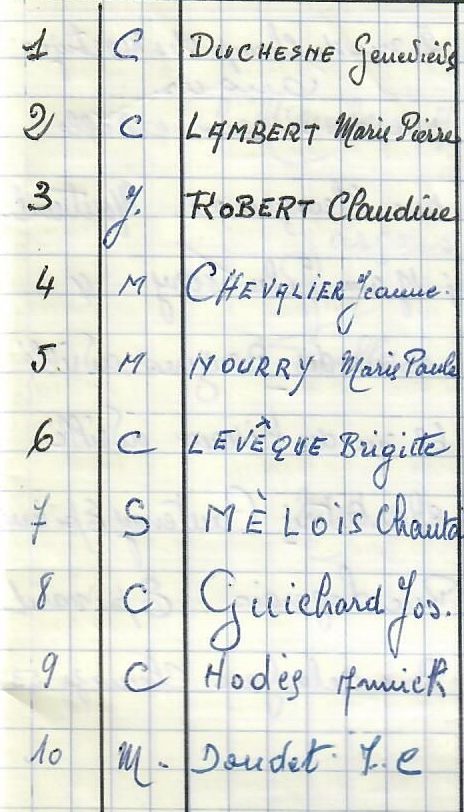 1 C DUCHESNE Geneviève
2 C LAMBERT Marie Pierre
3 J. ROBERT Claudine
4 M CHEVALIER Jeanne.
5. M NOURRY Marie Paule
6 C LEVÊQUE Brigitte
7 S MÈLOIS Chanta
8 C Guichard Jos.
9 C Hodès Annick
10 M. Doudet J.C